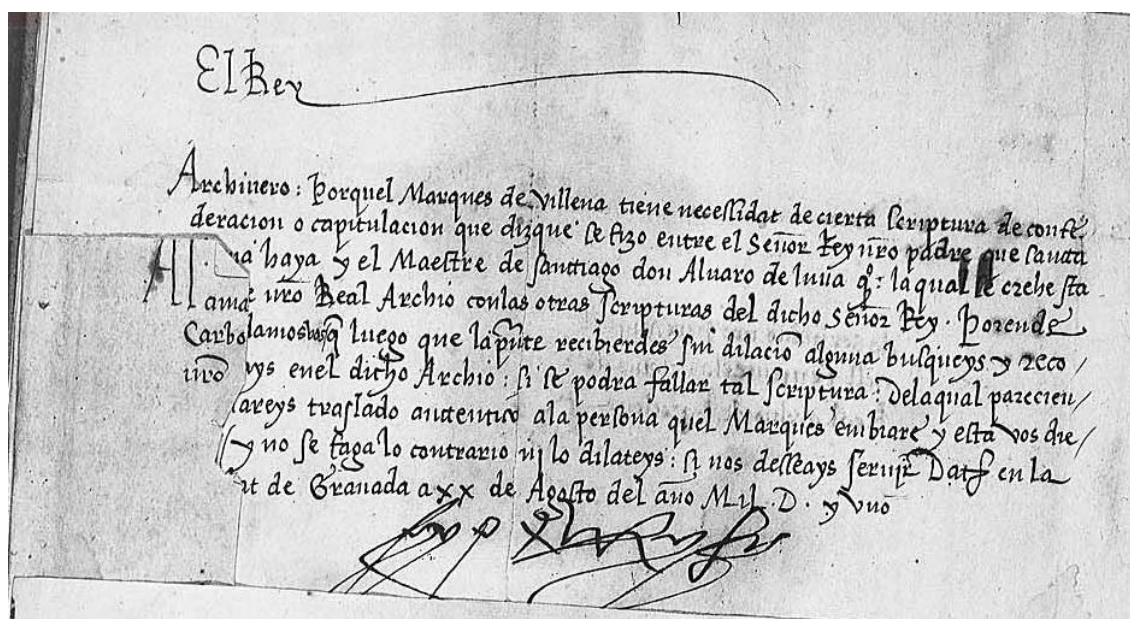 El Rey
Archinero: Porquel Marques de Villena tiene necessidat de cierta scriptura de confe
deracion o capitulacion que dizque se fizo entre el Señor Rey nr̃o padre que sancta
haya y el Maestre de Santiago don Aluaro de luna qº: laqual se crehe sta
nr̃o Real Archio conlas otras scripturas del dicho Señor Rey. Porende
luego que la pñte recibierdes sin dilacio alguna busqueys y reco/
ys enel dicho Archio: si se podra fallar tal scriptura: Delaqual parecien/
areys traslado autentico ala persona quel Marques embiare y esta vos die/
y no se faga lo contrario ni lo dilateys: si nos desseays seruir Datt en la
t de Granada a xx de Agosto del año Mil. D. y vno